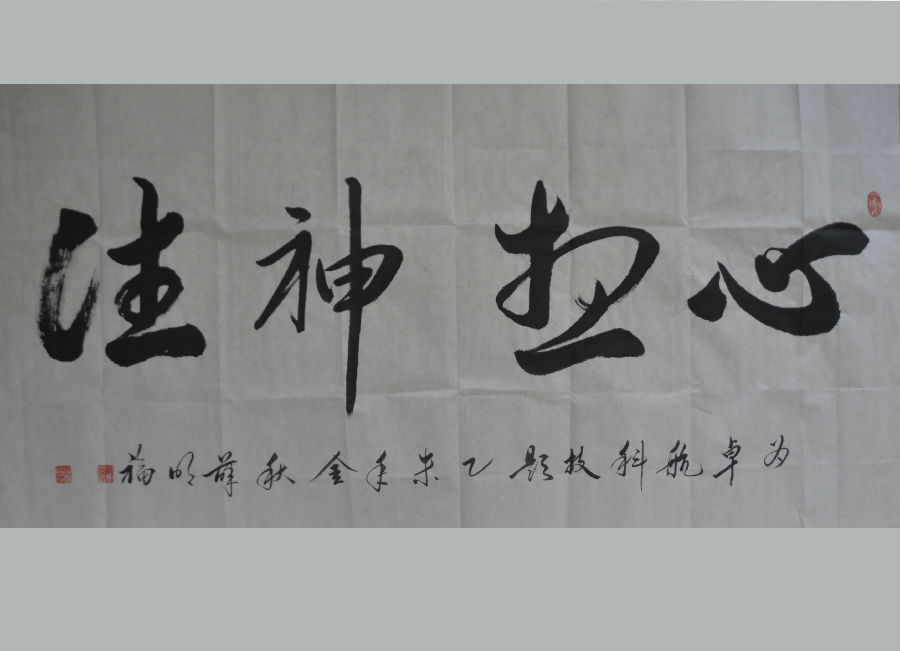 心想神往
为卓航科技题乙未年金秋薛明福